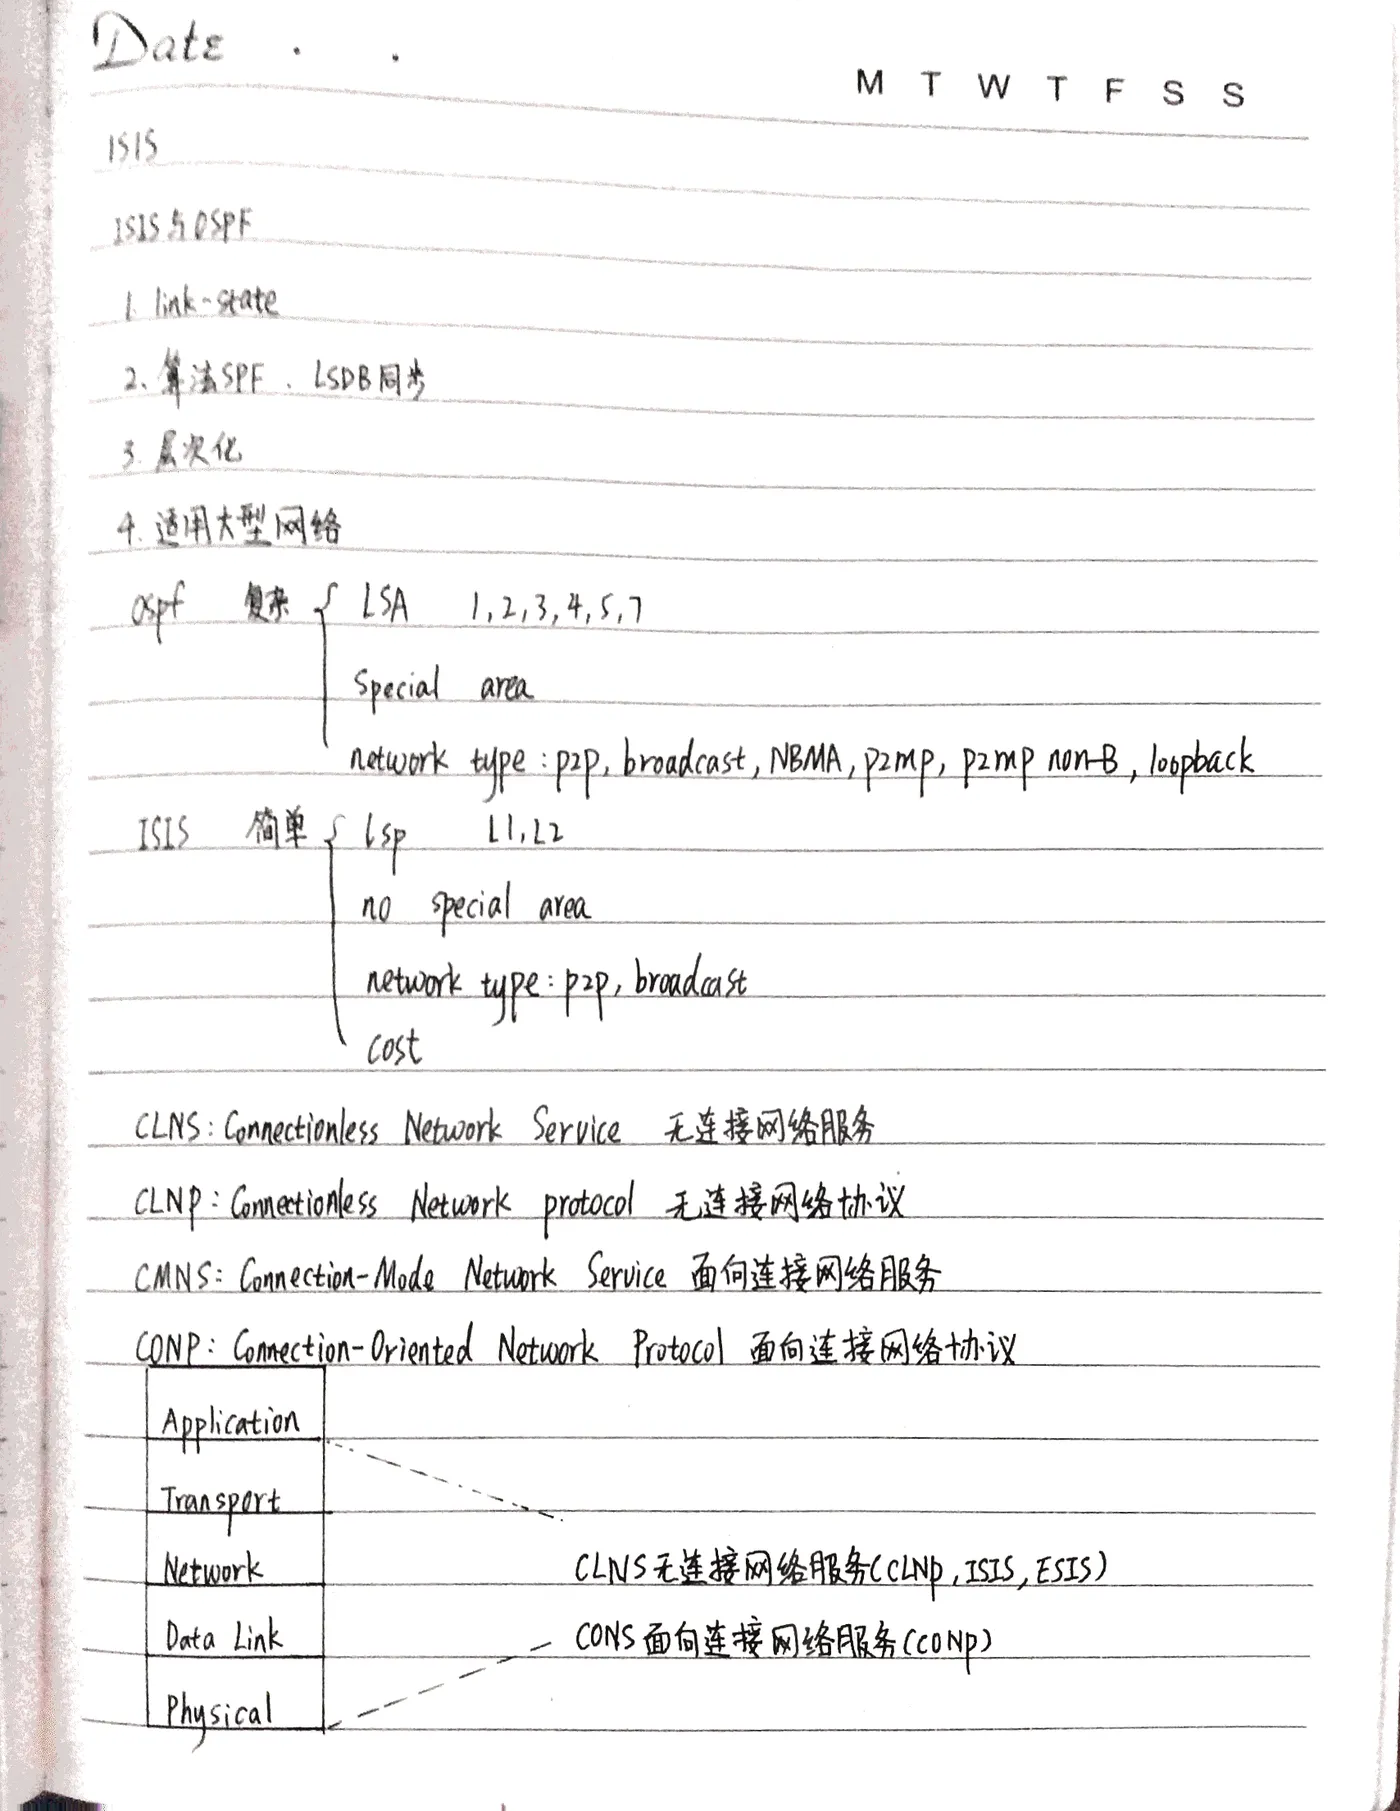 Date . .
M T W T F S S
ISIS
ISIS与OSPF
1. link-state
2、算法SPF 、LSDB同步
3. 层次化
4. 适用大型网络
ospf 复杂 { LSA 1,2,3,4,5,7
Special area
network type : p2p, broadcast, NBMA, p2mp, p2mp non-B, loopback
ISIS 简单 { lsp L1,L2
no special area
network type: p2p, broadcast
cost
CLNS: Connectionless Network Service 无连接网络服务
CLNP: Connectionless Network protocol 无连接网络协议
CMNS: Connection-Mode Network Service 面向连接网络服务
CONP: Connection-Oriented Network Protocol 面向连接网络协议
Application
Transport
Network CLNS无连接网络服务(CLNp,ISIS,ESIS)
Data Link CONS面向连接网络服务(CONp)
Physical